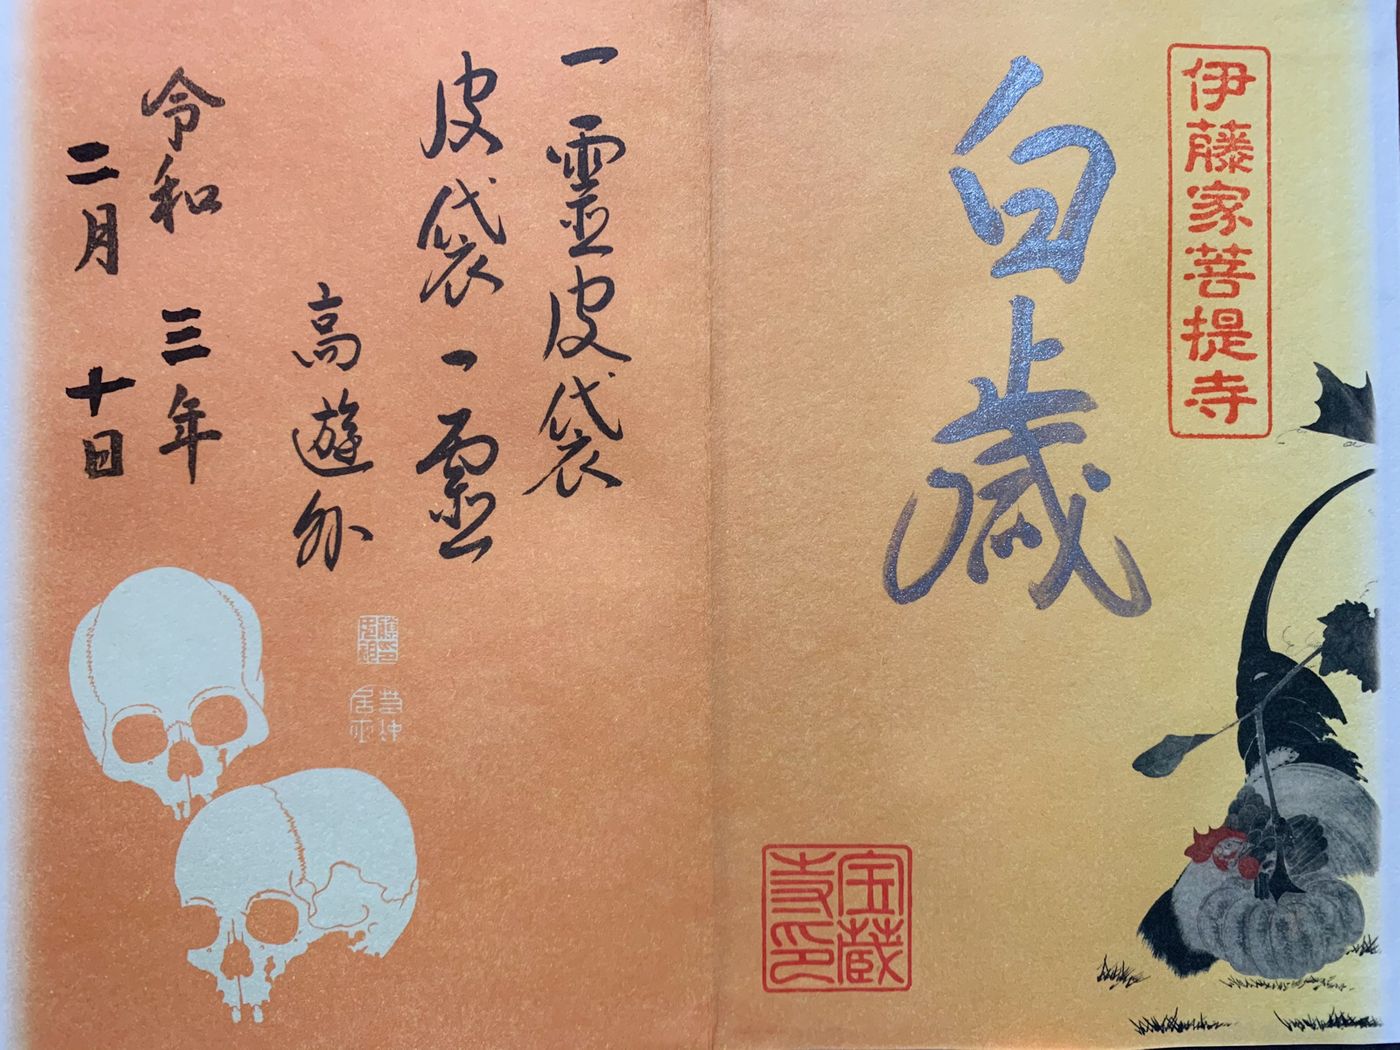 伊藤家菩提寺
白歳
宝蔵
寺印
一霊皮袋
皮袋一霊
高遊外
令和三年
二月十日